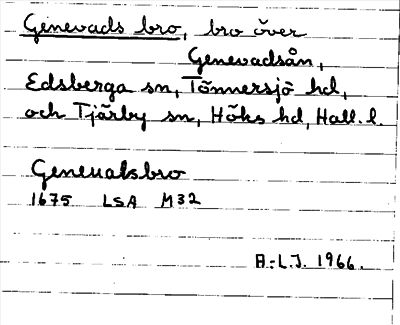 Genevads bro, bro över
Genevadsån,
Edsberga sn, Tönnersjö hd,
och Tjärby sn, Höks hd, Hall. l.
Geneualsbro
1675 LSA M32
B:L.J. 1966.